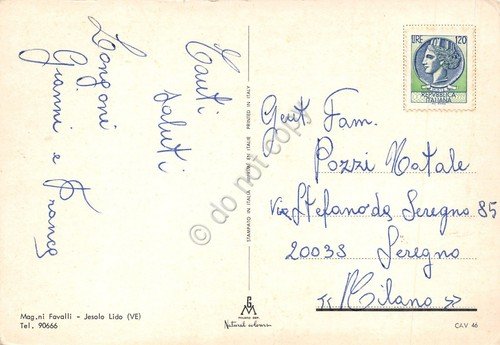 Tanti
saluti
Longoni
Gianni e Franca
LIRE 120
REPUBBLICA
ITALIANA
Gent Fam.
Pozzi Natale
Via Stefano da Seregno 85
20033 Seregno
« Milano »
STAMPATO IN ITALIA
PRINTED IN ITALY
do not copy
Mag.ni Favalli - Jesolo Lido (VE)
Tel. 90666
Natural colours
CAV 46